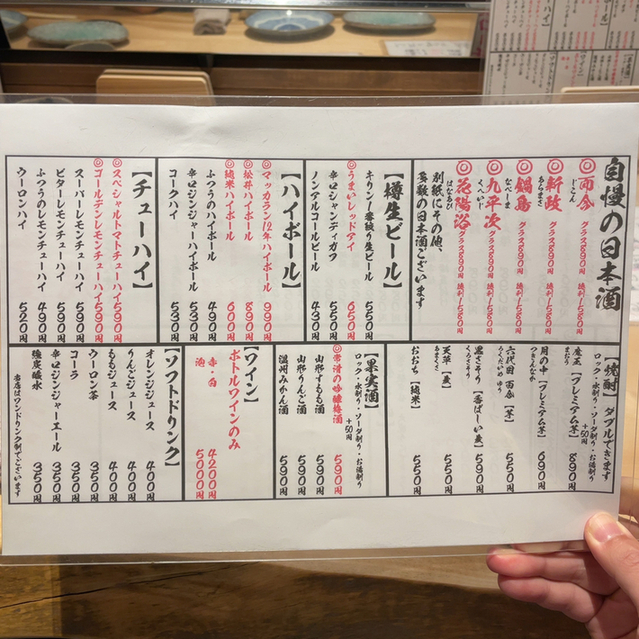 自慢の日本酒
◎而今 グラス890円 徳利1580円
じこん
◎新政 グラス890円 徳利1580円
あらまさ
◎鍋島 グラス890円 徳利1580円
なべしま
◎九平次 グラス890円 徳利1580円
くへいじ
◎花陽浴 グラス890円 徳利1580円
はなあび
別紙にその他、
多数の日本酒ございます
【樽生ビール】
キリン一番搾り生ビール 550円
◎うまいレッドアイ 650円
辛口シャンディガフ 550円
ノンアルコールビール 430円
【ハイボール】
◎マッカラン12年ハイボール 990円
◎松井ハイボール 890円
◎純米ハイボール 600円
ふつうのハイボール 490円
辛口ジンジャーハイボール 530円
コークハイ 530円
【チューハイ】
◎スペシャルトマトチューハイ 590円
◎ゴールデンレモンチューハイ 590円
スーパーレモンチューハイ 590円
ビターレモンチューハイ 590円
ふつうのレモンチューハイ 490円
ウーロンハイ 520円
【焼酎】ダブルできます
ロック・水割り・ソーダ割り・お湯割り
+50円
魔王【プレミアム芋】 890円
まおう
月の中【プレミアム芋】 690円
つきんなか
六代目 百合【芋】 550円
ろくだいめ ゆり
黒さそり【香ばしい麦】 550円
くろさそり
天草【麦】 550円
あまくさ
おおち【純米】 550円
【果実酒】
ロック・水割り・ソーダ割り・お湯割り
+50円
◎常滑の吟醸梅酒 590円
山形すもも酒 590円
山形りんご酒 590円
温州みかん酒 590円
【ワイン】
ボトルワインのみ
赤・白 4200円
泡 5000円
【ソフトドリンク】
オレンジジュース 400円
りんごジュース 400円
ももジュース 400円
ウーロン茶 350円
コーラ 350円
辛口ジンジャーエール 350円
強炭酸水 350円
当店はワンドリンク制でございます